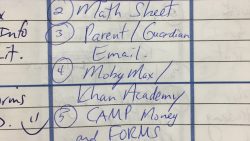 ② Math Sheet
Info ③ Parent/Guardian
it. Email.
④ MobyMax/
Khan Academy
⑤ CAMP Money
and FORMS